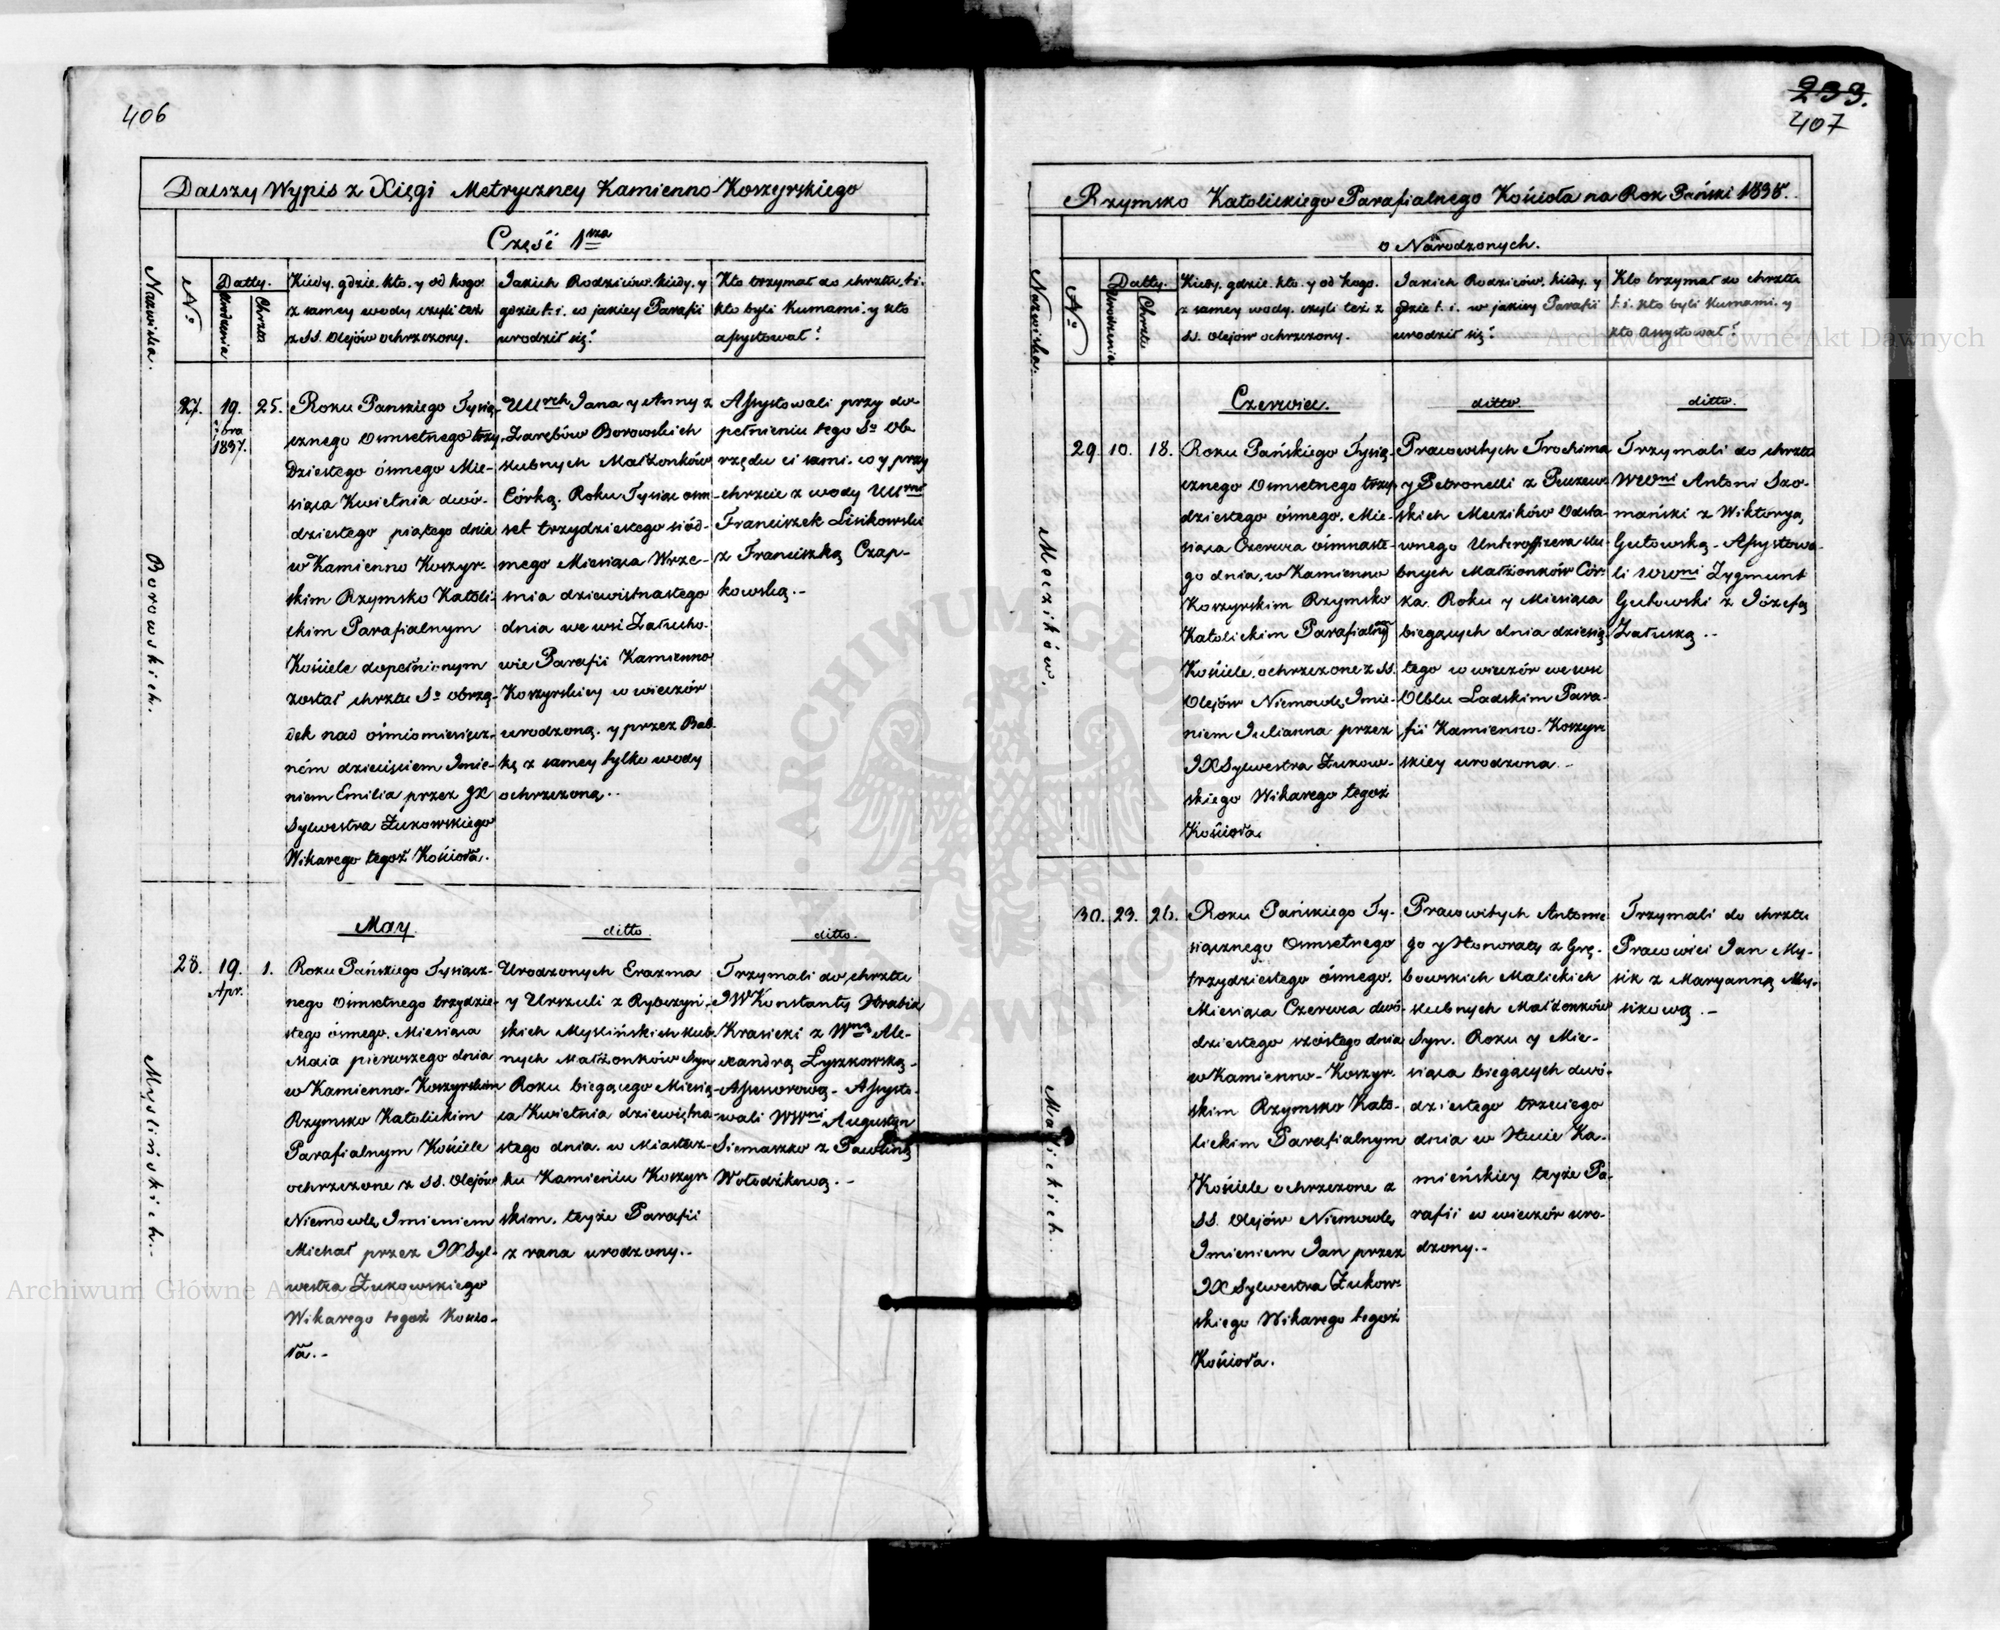 406
Dalszy Wypis z Xięgi Metryczney Kamienno-Koszyrskiego
Część 1sza
Nazwiska.
N:o
Datty.
Urodzenia
Chrztu
Kiedy, gdzie, kto, y od kogo
z samey wody czyli też
z SS. Olejów ochrzczony.
Jakich Rodziców, kiedy, y
gdzie t. i. w jakiey Parafii
urodził się?
Kto trzymał do chrztu t. i.
kto byli Kumami, y kto
assystował?
Borowskich.
27.
19.
7bra
1837.
25.
Roku Panskiego Tysią-
cznego Osmsetnego trzy-
dziestego ósmego Mie-
siąca Kwietnia dwó-
dziestego piątego dnia
w Kamienno Koszyr-
skim Rzymsko Katoli-
ckim Parafialnym
Kościele dopełnionym
został chrztu So obrzą-
dek nad ośmiomiesięcz-
ném dziecięciem Imie-
niem Emilia przez JX
Sylwestra Żukowskiego
Wikarego tegoż Kościoła.
UUrch Jana y Anny z
Zarębów Borowskich
slubnych Małżonków
Córką. Roku Tysiąc osm-
set trzydziestego siód-
mego Miesiąca Wrze-
snia dziewiętnastego
dnia we wsi Załucho-
wie Parafii Kamienno
Koszyrskiey w wieczór
urodzoną. y przez Bab-
kę z samey tylko wody
ochrzczoną..
Assystowali przy do-
pełnieniu tego So Ob-
rzędu ci sami. co y przy
chrzcie z wody UUrni
Franciszek Lisikowski
z Franciszką Czap-
kowską.-
May
ditto
ditto.
Myslińskich.-
28.
19.
Apr.
1.
Roku Pańskiego Tysiącz-
nego Osmsetnego trzydzie-
stego ósmego. Miesiąca
Maia pierwszego dnia
w Kamienno-Koszyrskim
Rzymsko Katolickim
Parafialnym Kościele
ochrzczone z SS. Olejów
Niemowlę, Imieniem
Michał przez JX Syl-
westra Żukowskiego
Wikarego tegoż Kościo-
ła.-
Urodzonych Erazma
y Urszuli z Rybczyń-
skich Myslińskich slub-
nych Małżonków Syn
Roku biegącego Miesią-
ca Kwietnia dziewiętna-
stego dnia. w Miastecz-
ku Kamieniu Koszyr-
skim. teyże Parafii
z rana urodzony.-
Trzymali do chrztu
JW Konstanty Hrabia
Krasicki z Wną Ale-
xandrą Łyszkowską-
Assesorową- Assysto-
wali WWni Augustyn
Siemaszko z Pauliną
Wołodźkową.-
233.
407
Rzymsko Katolickiego Parafialnego Kościoła na Rok Pański 1838.
o Narodzonych.
Nazwiska.
N:o
Datty.
Urodzenia
Chrztu
Kiedy, gdzie, kto, y od kogo.
z samey wody, czyli też z
SS. Olejów ochrzczony.
Jakich Rodziców, kiedy, y
gdzie t. i. w jakiey Parafii
urodził się?
Kto trzymał do chrztu
t. i. kto byli Kumami, y
kto assystował?
Czerwiec.
ditto.
ditto.
Meczików.
29.
10.
18.
Roku Pańskiego Tysią-
cznego Osmsetnego trzy-
dziestego ósmego. Mie-
siąca Czerwca ośmnaste-
go dnia, w Kamienno
Koszyrskim Rzymsko
Katolickim Parafialny
Kościele, ochrzczone z SS.
Olejów Niemowlę, Imie-
niem Julianna przez
JX Sylwestra Żukow-
skiego Wikarego tegoż
Kościoła.
Pracowitych Trochima
y Petronelli z
skich Meczików Odsta-
wnego Unteroffizera slu-
bnych Małżonków Cór-
ka. Roku y Miesiąca
biegących dnia dziesią-
tego w wieczór we wsi
Olblu Ladskim Para-
fii Kamienno-Koszyr-
skiey urodzona.-
Trzymali do chrztu
WWni Antoni Szo-
mański z Wiktoryą
Gutowską- Assystowa-
li WWni Zygmunt
Gutowski z Józefą
Załuską..
Malickich.
30.
23.
26.
Roku Pańskiego Ty-
siącznego Osmsetnego
trzydziestego ósmego.
Miesiąca Czerwca dwó-
dziestego szóstego dnia
w Kamienno-Koszyr-
skim Rzymsko Kato-
lickim Parafialnym
Kościele ochrzczone z
SS. Olejów Niemowlę,
Imieniem Jan przez
JX Sylwestra Żukow-
skiego Wikarego tegoż
Kościoła.
Pracowitych Antonie-
go y Honoraty z Grę-
bowskich Malickich
slubnych Małżonków
Syn. Roku y Mie-
siąca biegących dwó-
dziestego trzeciego
dnia w Hucie Ka-
mieńskiey teyże Pa-
rafii w wieczór uro-
dzony.-
Trzymali do chrztu
Pracowici Jan My-
sik z Maryanną My-
sikową.-
Archiwum Główne Akt Dawnych
Archiwum Główne Akt Dawnych